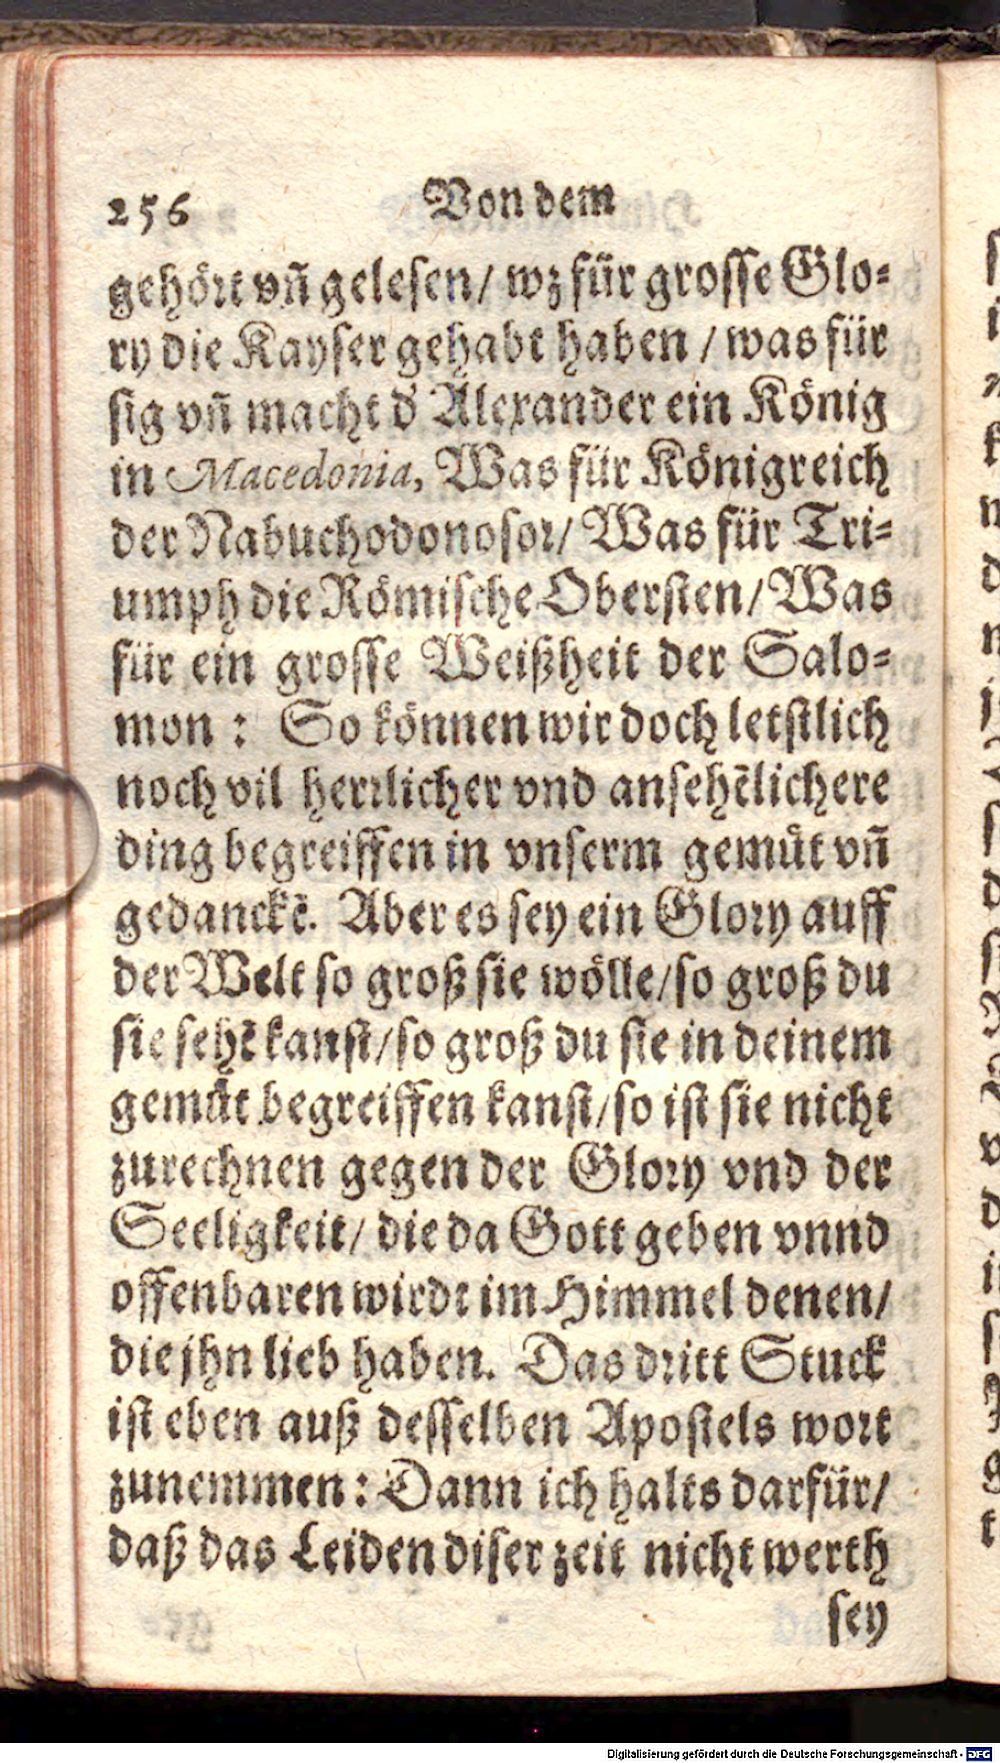 256 Von dem
gehört vn̄ gelesen/ wz für grosse Glo⸗
ry die Kayser gehabt haben / was für
sig vn̄ macht d' Alexander ein König
in Macedonia, Was für Königreich
der Nabuchodonosor/ Was für Tri⸗
umph die Römische Obersten/ Was
für ein grosse Weißheit der Salo⸗
mon : So können wir doch letstlich
noch vil herrlicher vnd ansehēlichere
ding begreiffen in vnserm gemüt vn̄
gedanckē. Aber es sey ein Glory auff
der Welt so groß sie wölle/ so groß du
sie sehē kanst/ so groß du sie in deinem
gemüt begreiffen kanst/ so ist sie nicht
zurechnen gegen der Glory vnd der
Seeligkeit/ die da Gott geben vnnd
offenbaren wirdt im Himmel denen/
die jhn lieb haben. Das dritt Stuck
ist eben auß desselben Apostels wort
zunemmen : Dann ich halts darfür/
daß das Leiden diser zeit nicht werth
sey
Digitalisierung gefördert durch die Deutsche Forschungsgemeinschaft - DFG